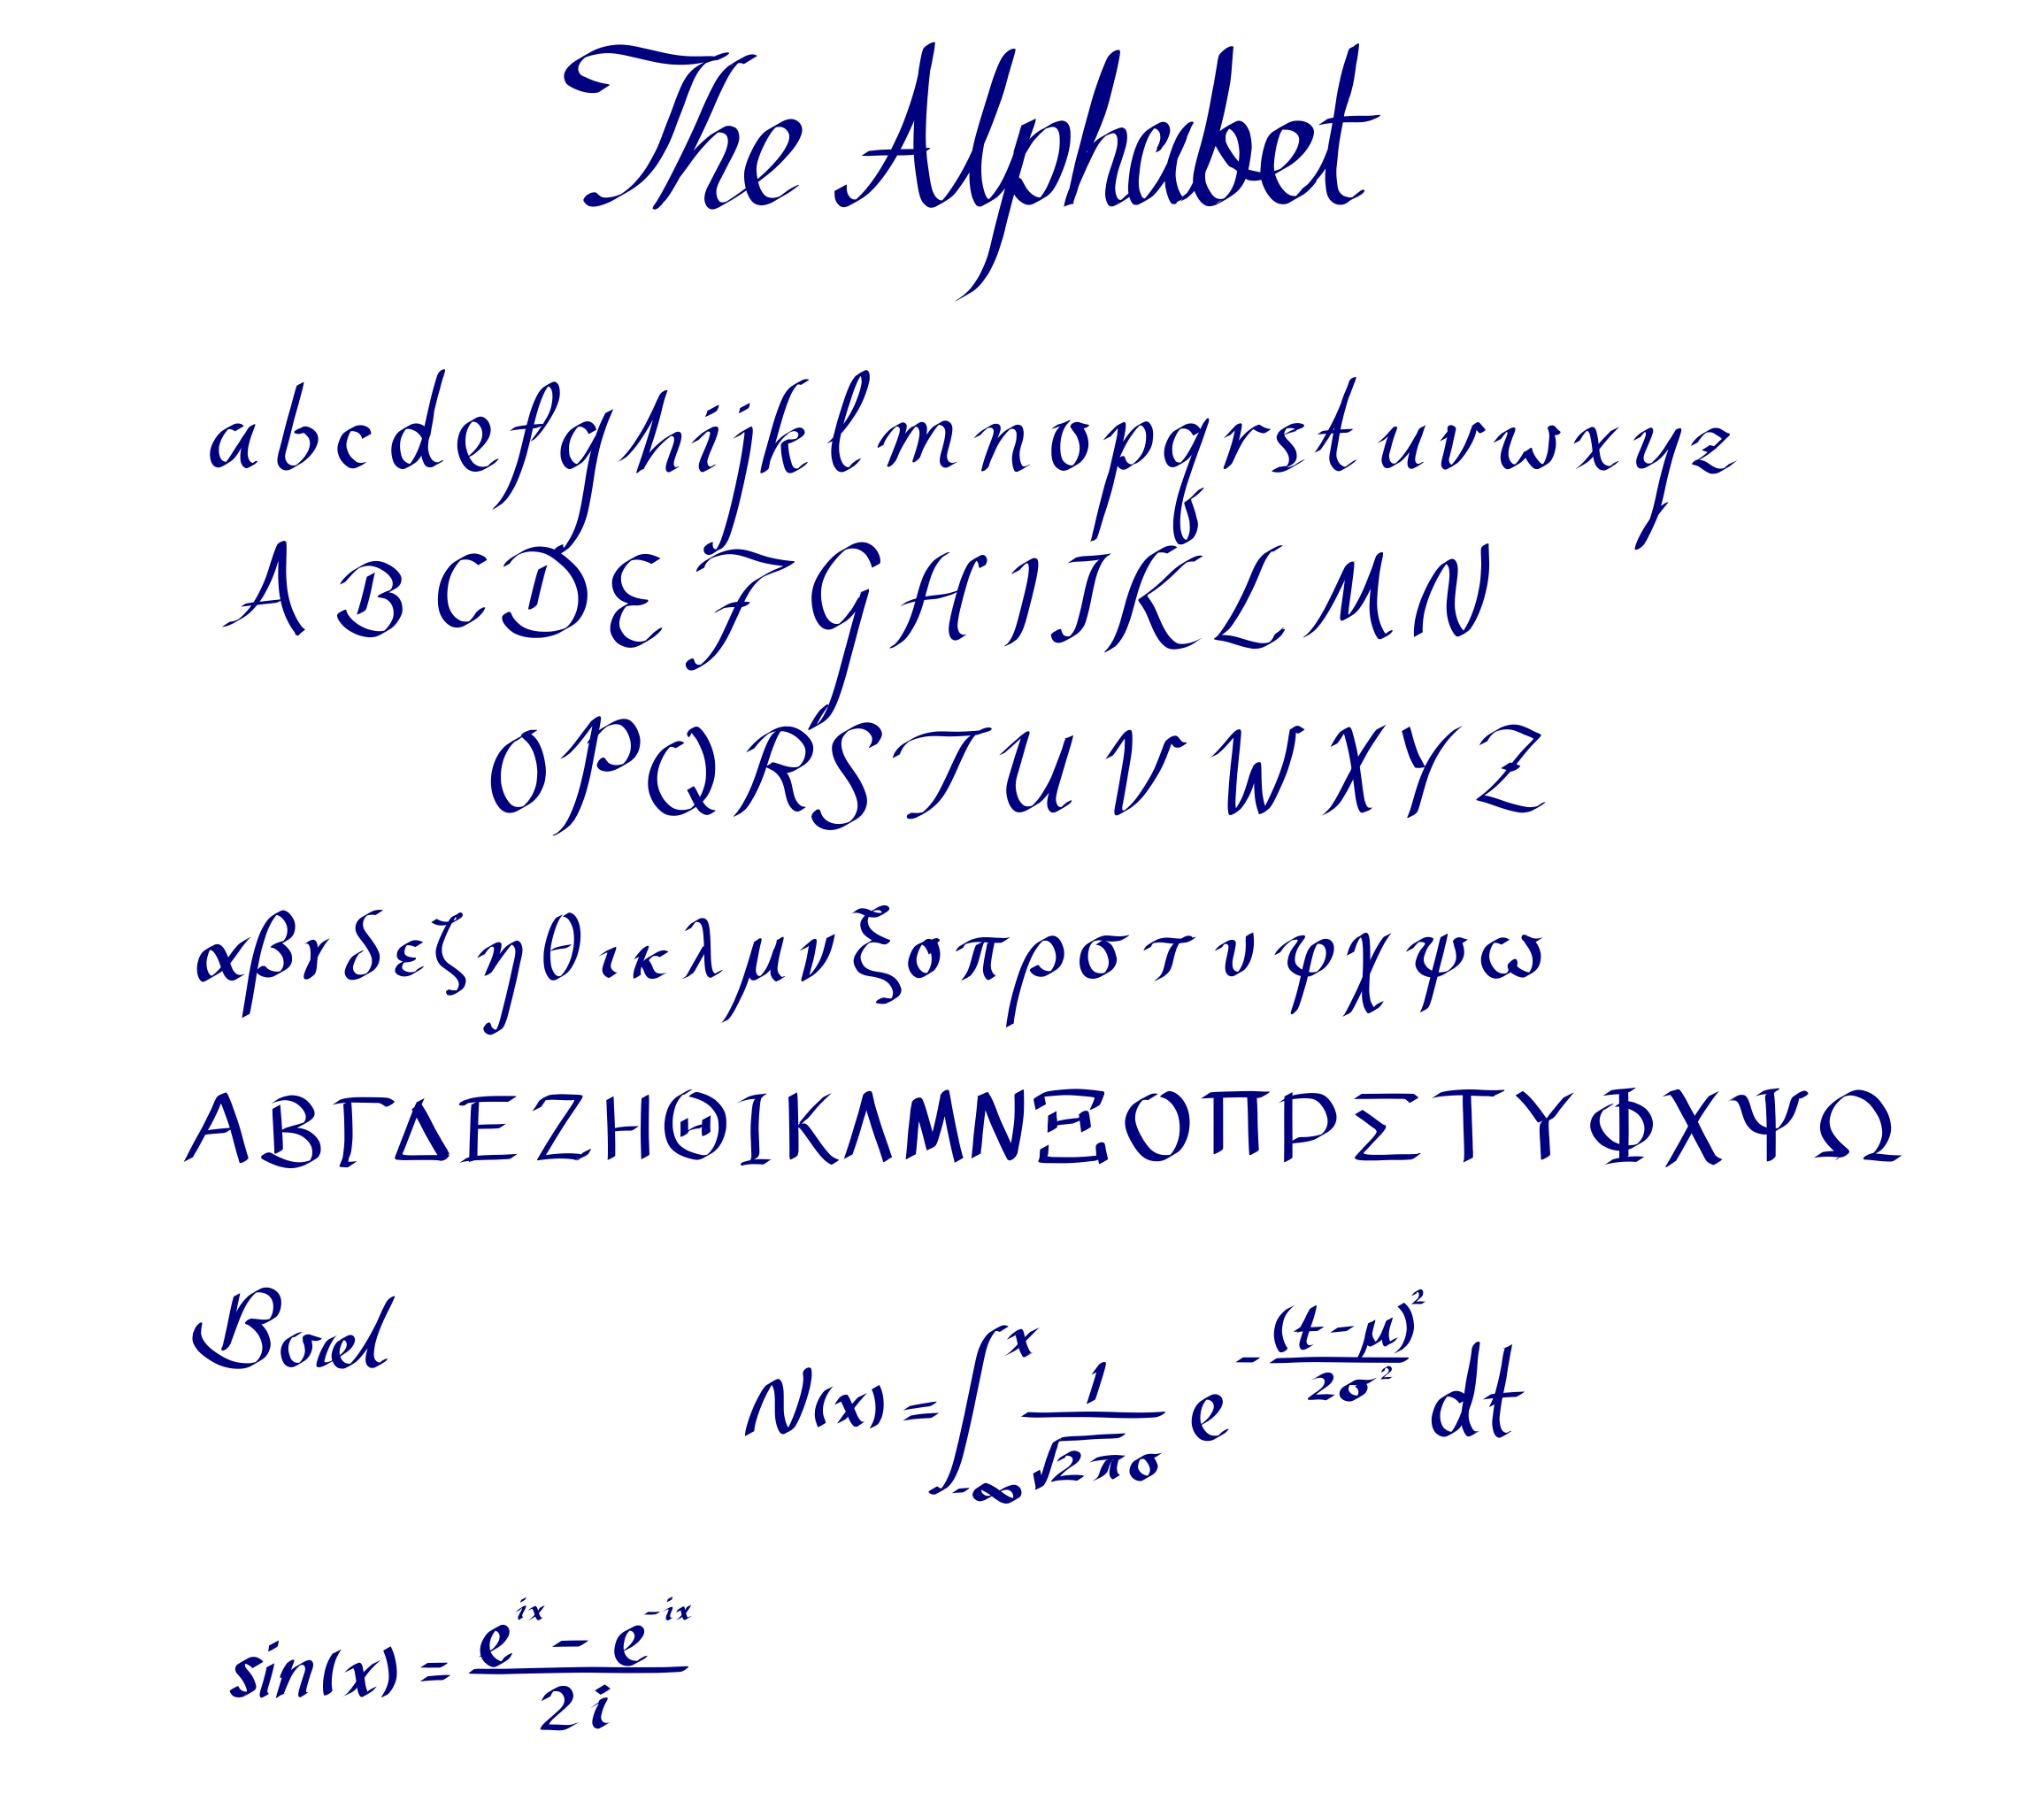 The Alphabet
a b c d e f g h i j k l m n o p q r s t u v w x y z
A B C D E F G H I J K L M N
O P Q R S T U V W X Y Z
α β γ δ ε ζ η θ ι κ λ μ ν ξ ο π ρ σ τ υ φ χ ψ ω
Α Β Γ Δ Ε Ζ Η Θ Ι Κ Λ Μ Ν Ξ Ο Π Ρ Σ Τ Υ Φ Χ Ψ Ω
Bored
N(x) = ∫_{-∞}^{x} 1/√(2πσ) e^{-(t-μ)²/2σ²} dt
sin(x) = (e^{ix} - e^{-ix})/2i